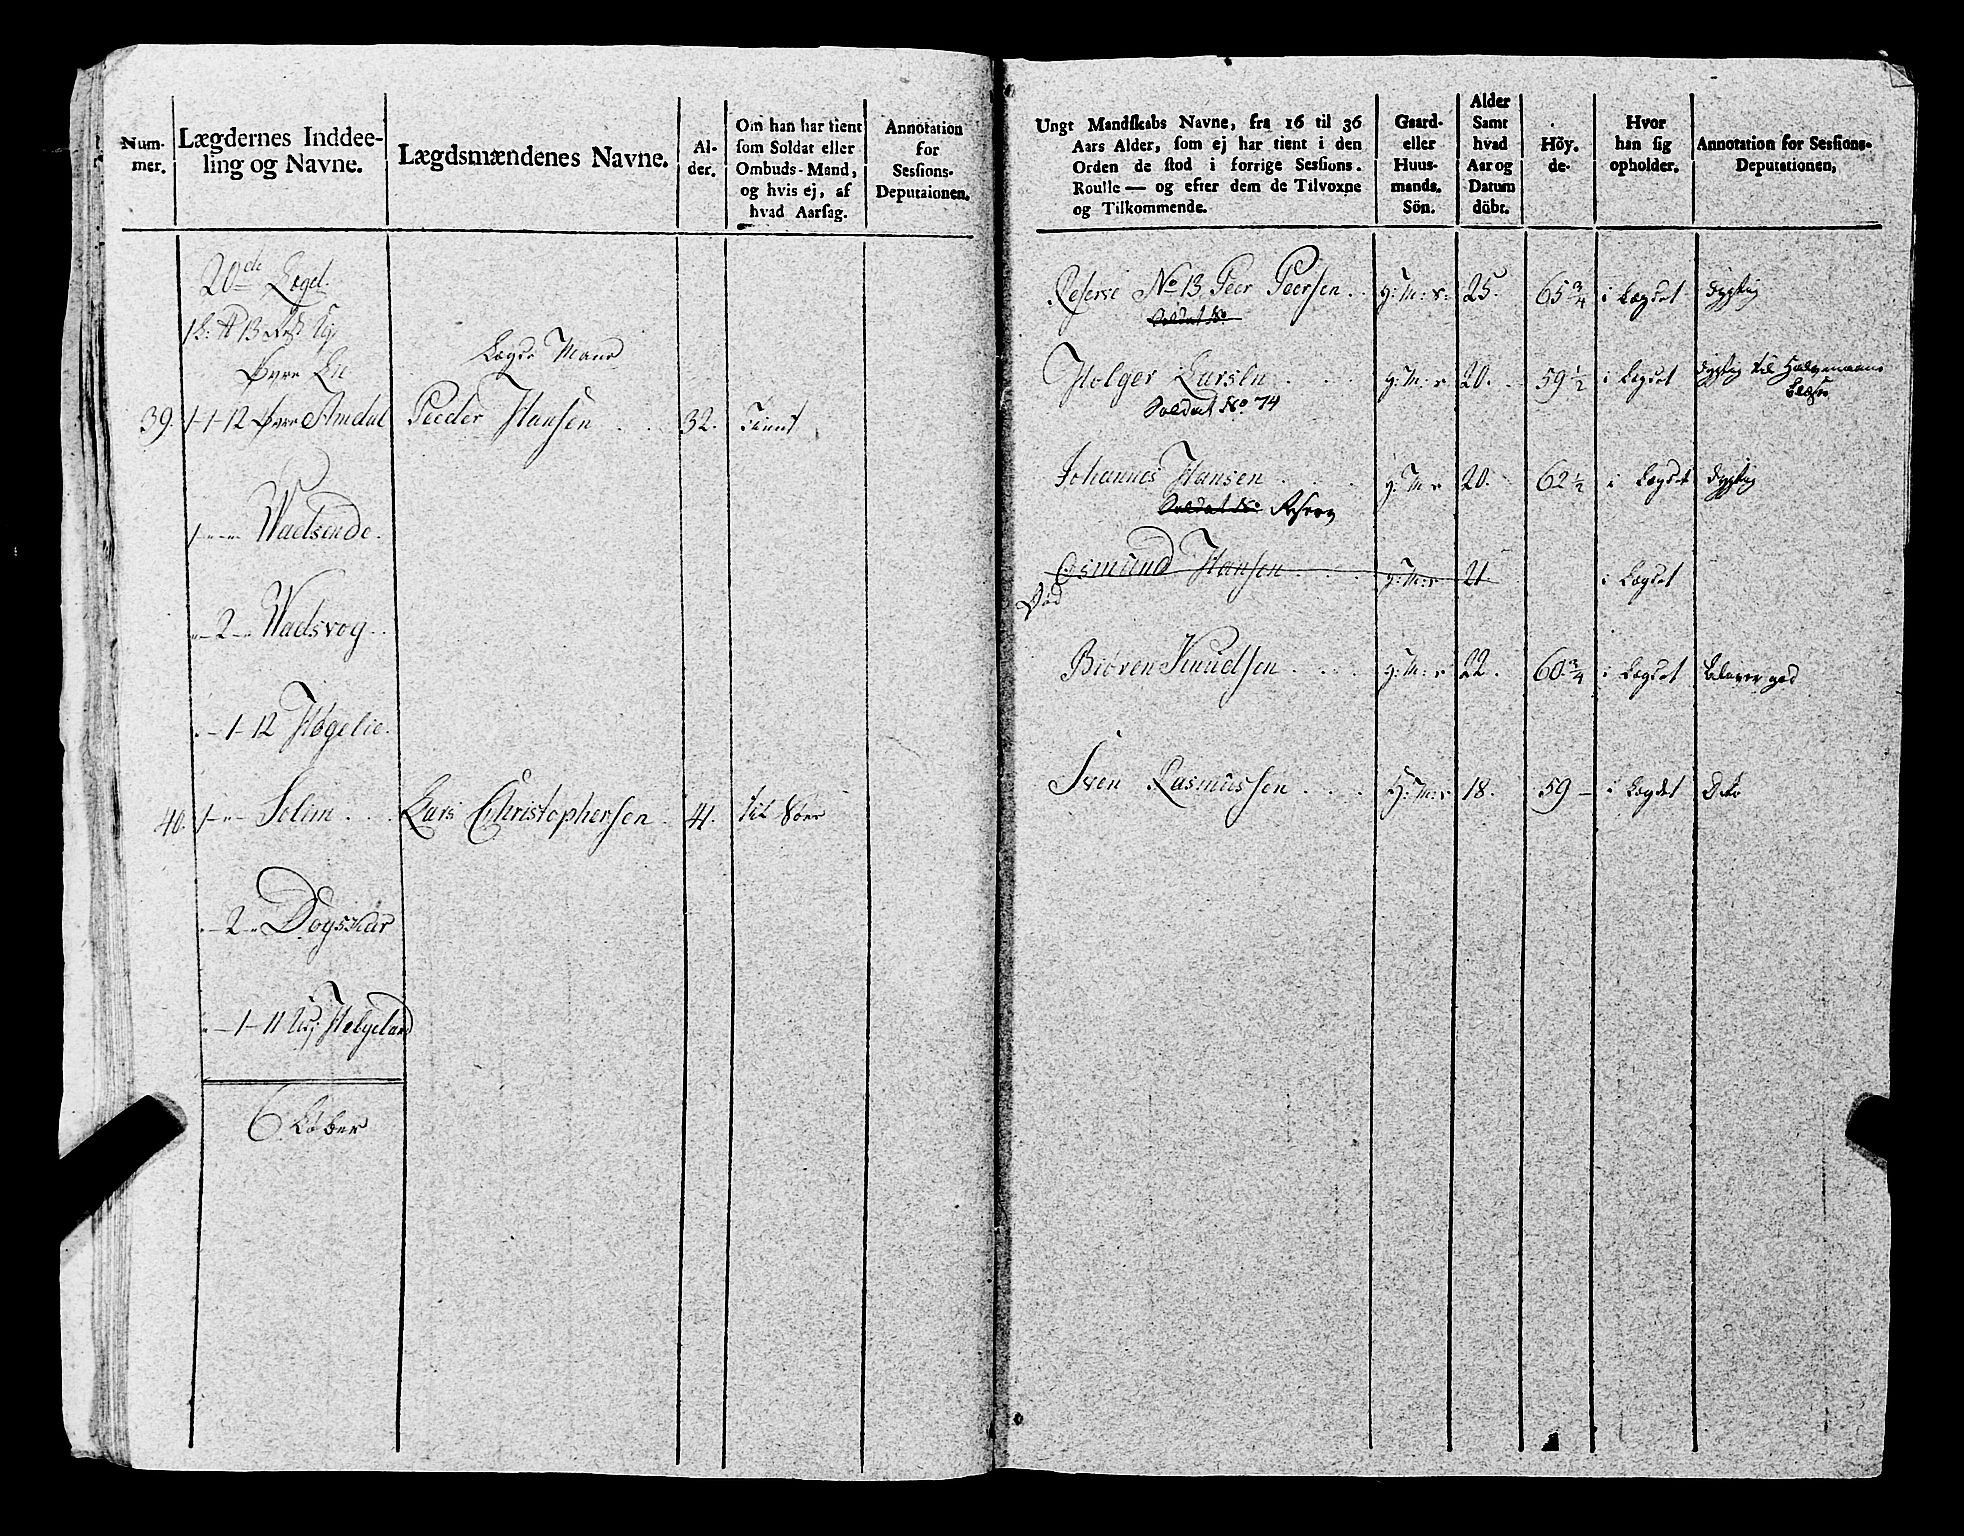 Num-
mer.
Lægdernes Inddee-
ling og Navne.
Lægdsmændenes Navne.
Al-
der.
Om han har tient
som Soldat eller
Ombuds-Mand,
og hvis ej, af
hvad Aarsag.
Annotation
for
Sessions-
Deputaionen.
20de Lægd.
Øvre Lie
Lægds Mand
39. 1-1-12 Øvre Amdal Peeder Hansen 32. Tient
1-"-" Wadsende.
"-2-" Wadsvog
"-1-12 Høgelie
40. 1-"-" Solem Lars Christophersen 41.
"-2-" Dogsskar
"-1-11 Helgeland
6 Løber
Ungt Mandskabs Navne, fra 16 til 36
Aars Alder, som ej har tient i den
Orden de stod i forrige Sessions-
Roulle — og efter dem de Tilvoxne
og Tilkommende.
Gaard-
eller
Huus-
mands-
Sön.
Alder
Samt
hvad
Aar og
Datum
döbt.
Höy-
de-
Hvor
han sig
opholder.
Annotation for Sessions-
Deputationen,
Reserve No 13 Peer Peersen g: M: s: 25. 65 3/4 i Lægdet dygtig
Soldat No
Holger Larsen g: M: s 20. 59 1/2 i Lægdet dygtig til
Soldat No 74
Johannes Hansen g: M: s 20. 62 1/2 i Lægdet dygtig
Soldat No Reserve
Osmund Hansen g: M: s 21 i Lægdet
Død
Biören Knudsen g: M: s 22. 60 3/4 i Lægdet
Sven Rasmussen H: M: s 18. 59 — i Lægdet Dito